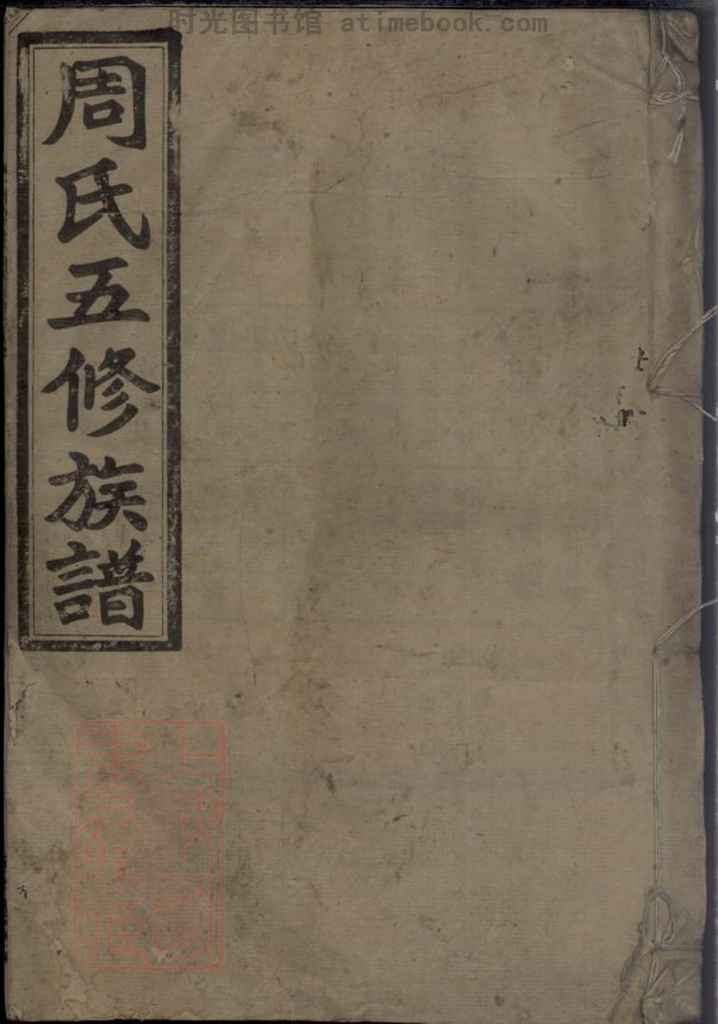 时光图书馆 atimebook.com
周氏五修族譜